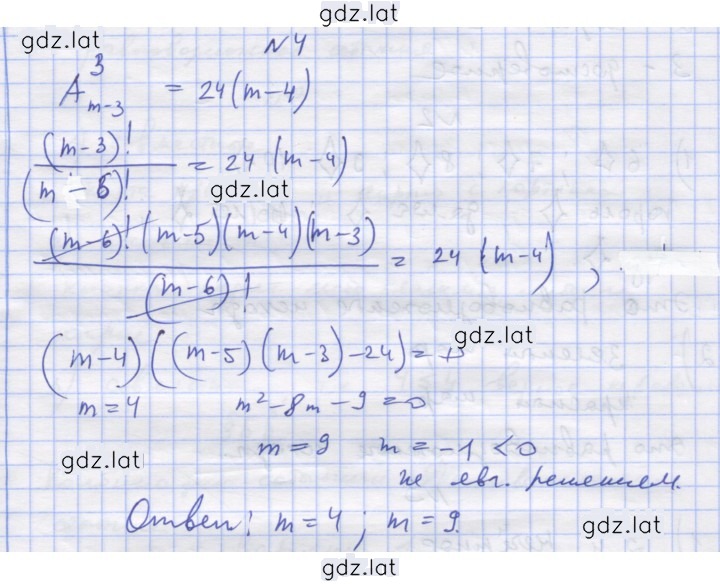 gdz.lat
gdz.lat
N4
A³ₘ₋₃ = 24(m-4)
(m-3)! / (m-6)! = 24 (m-4)
gdz.lat
(m-6)! (m-5)(m-4)(m-3) / (m-6)! = 24 (m-4) ,
gdz.lat
(m-4)((m-5)(m-3)-24) = 0
m=4 m²-8m-9=0
m=9 m=-1<0
gdz.lat
не явл. решением.
Ответ: m=4; m=9.
gdz.lat
gdz.lat